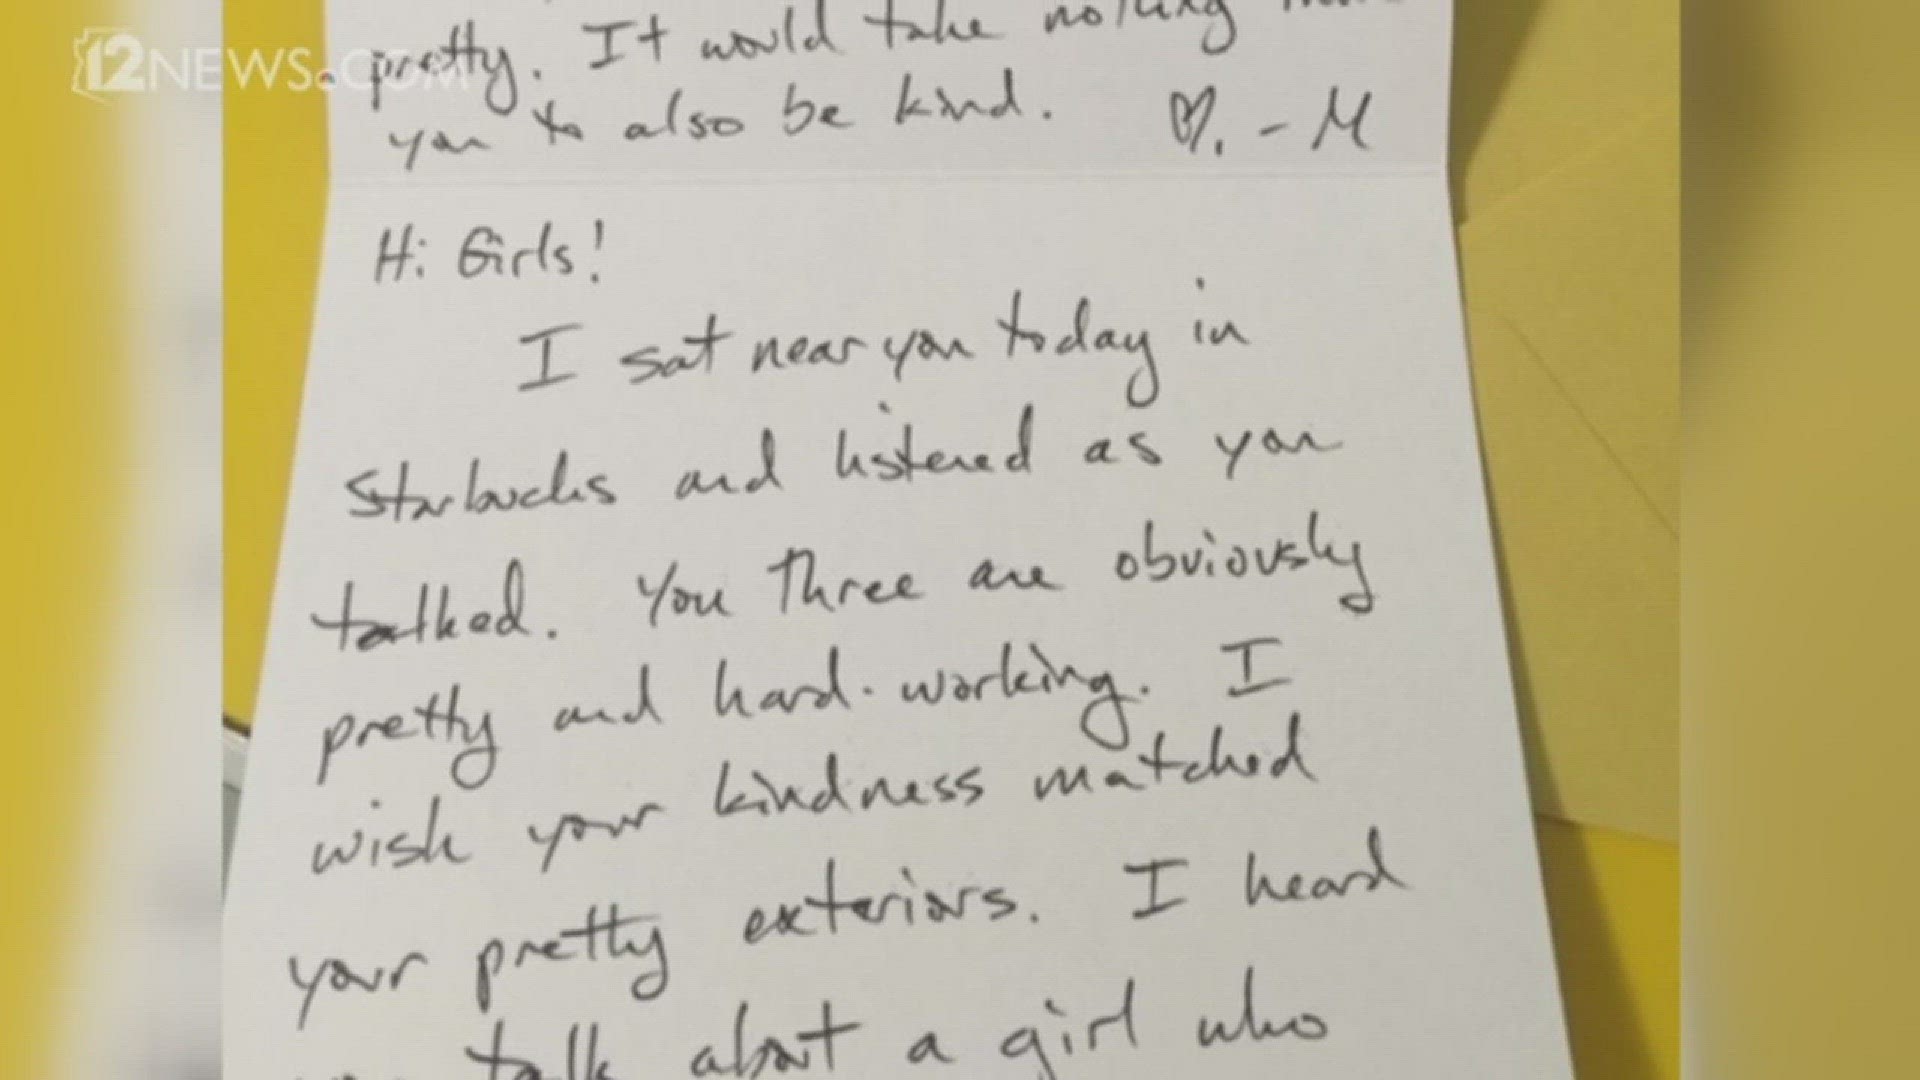 12NEWS.COM
pretty. It would take nothing more
you to also be kind. ♡. - M
Hi Girls!
I sat near you today in
Starbucks and listened as you
talked. You three are obviously
pretty and hard-working. I
wish your kindness matched
your pretty exteriors. I heard
you talk about a girl who